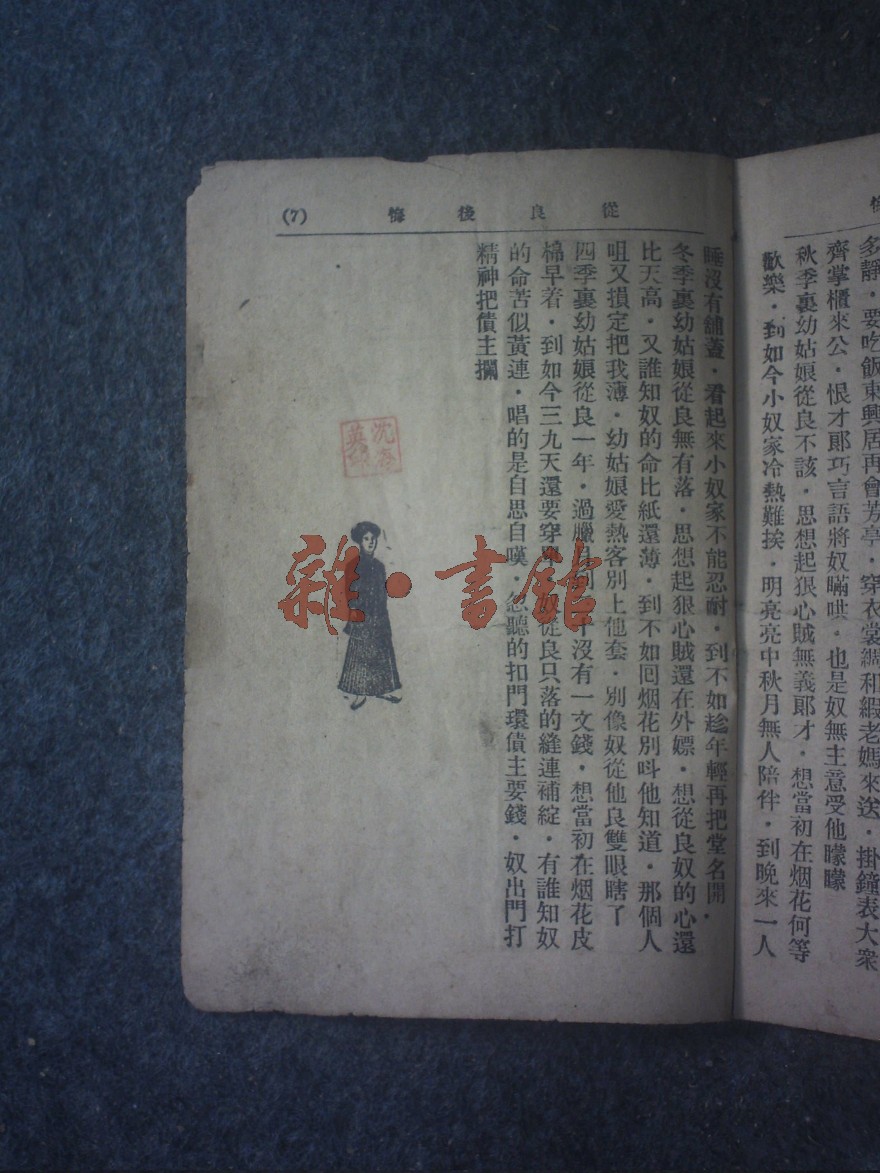 多靜．要吃飯東興居再會芳亭．穿衣裳綢和緞老媽來送．掛鐘表大衆
齊掌櫃來公．恨才郎巧言語將奴瞞哄．也是奴無主意受他矇矇
秋季裏幼姑娘從良不該．思想起狠心賊無義郎才．想當初在烟花何等
歡樂．到如今小奴家冷熱難挨．明亮亮中秋月無人陪伴．到晚來一人
從良後悔
(7)
睡沒有舖蓋．看起來小奴家不能忍耐．到不如趁年輕再把堂名開．
冬季裏幼姑娘從良無有落．思想起狠心賊還在外嫖．想從良奴的心還
比天高．又誰知奴的命比紙還薄．到不如囘烟花別呌他知道．那個人
咀又損定把我薄．幼姑娘愛熱客別上他套．別像奴從他良雙眼瞎了
四季裏幼姑娘從良一年．過臘月沒有一文錢．想當初在烟花皮
棉早着．到如今三九天還要穿單．奴從良只落的縫連補綻．有誰知奴
的命苦似黃連．唱的是自思自嘆．忽聽的扣門環債主要錢．奴出門打
精神把債主攔
雜·書館